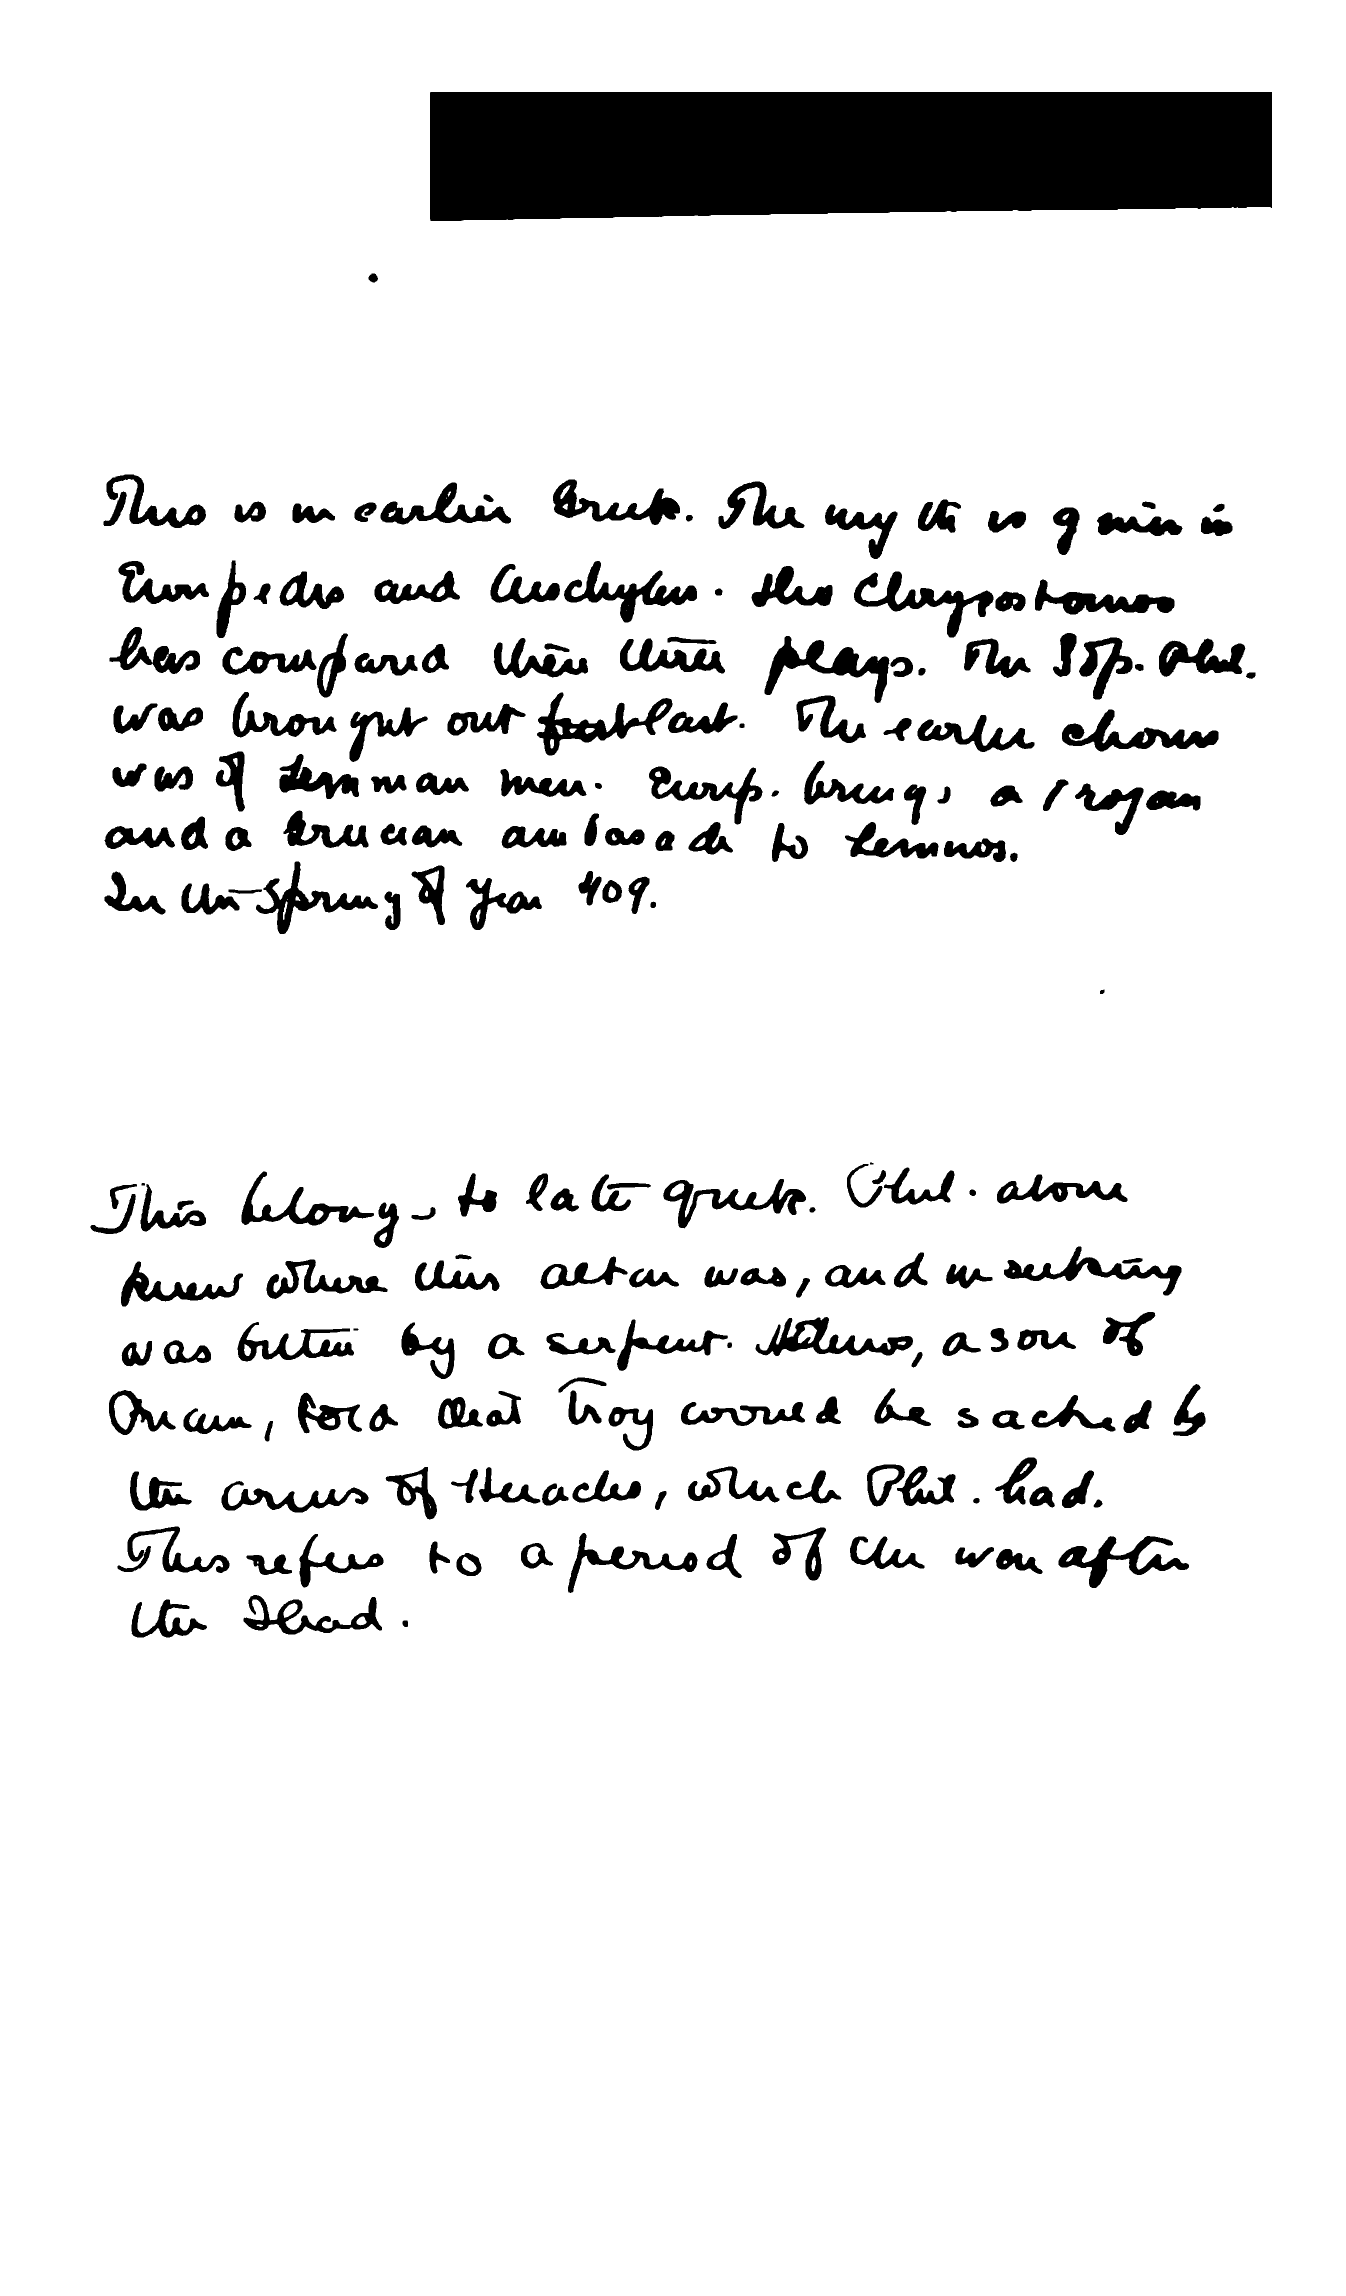 This is in earlier Greek. The myth is given in
Euripedes and Aeschylus. Dio Chrypostomos
has compared these three plays. The Sop. Phil.
was brought out first last. The earlier chorus
was of Lemnian men. Eurip. brings a Trojan
and a Grecian ambassade to Lemnos.
In the Spring of year 409.
This belongs to late greek. Phil. alone
knew where this altar was, and in seeking
was bitten by a serpent. Helenos, a son of
Priam, told that Troy would be sacked by
the arms of Heracles, which Phil. had.
This refers to a period of the war after
the Iliad.